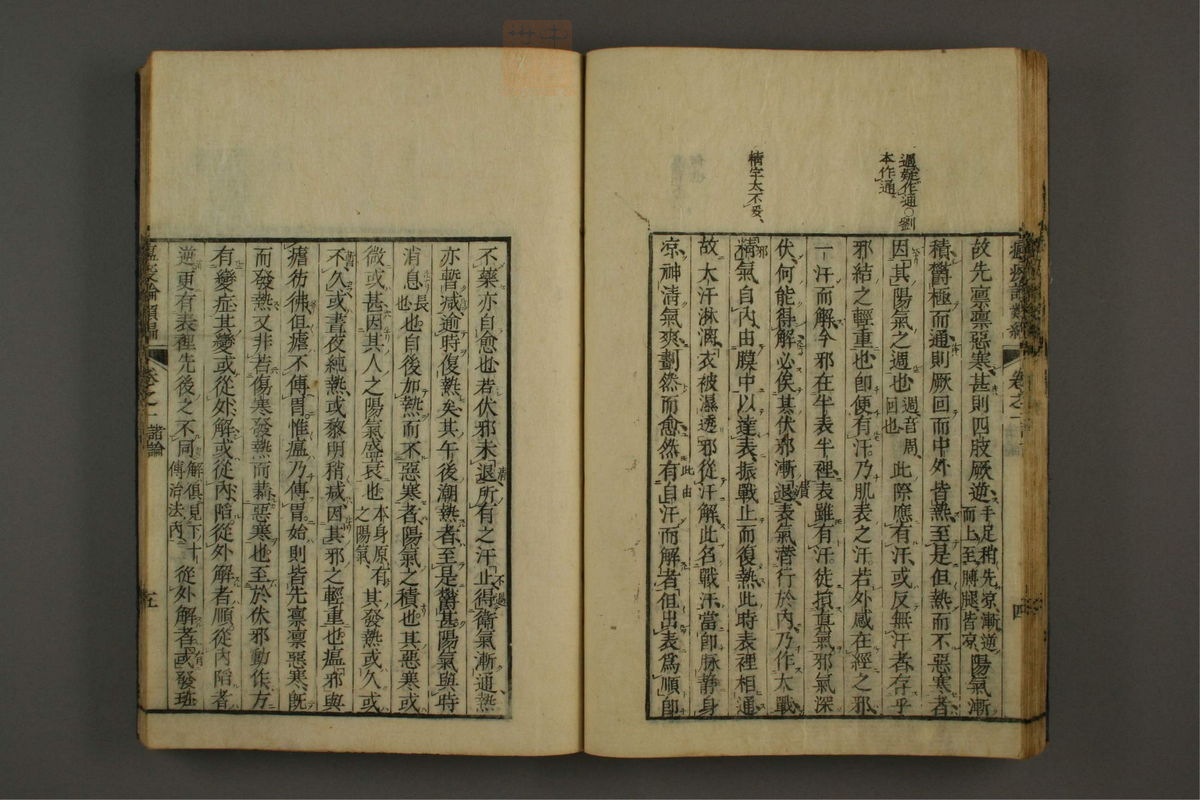 過疑作通。劉
本作通
精字大不妥、
故先凛凛惡寒、甚則四肢厥逆、手足稍先凉、漸逆而上至膊腿皆凉、陽氣漸
積欝極而通則厥回而中外皆熱至是但熱而不惡寒者
因其陽氣之週也、週音周、回也此際應有汗、或反無汗者、存乎
邪結之輕重也、即便有汗、乃肌表之汗。若外感在經之邪
一汗而解、今邪在半表半裡、表雖有汗、徒損真氣邪氣深
伏、何能得解、必俟其伏邪漸退表氣潜行於内、乃作大戰
精氣自内由膜中以達表、振戰止而復熱、此時表裡相通
故大汗淋漓、衣被濕透、邪從汗解、此名戰汗、當即脉静身
凉、神清氣爽、劃然而愈、然有自汗而解者、但出表為順、即
卷之一
四
不藥亦自愈也、若伏邪未退所有之汗、止得衛氣漸通熱
亦暫减逾時復熱矣其午後潮熱者、至是欝甚陽氣與時
消息長也也自後加熱而不惡寒者陽氣之積也其惡寒或
微或甚因其人之陽氣盛衰也本身原有之陽氣、其發熱或久或
不久或晝夜純熱、或黎明稍减因其邪之輕重也瘟邪與
瘧彷彿但瘧不傳胃惟瘟乃傳胃始則皆先凛凛惡寒、既
而發熱又非若傷寒發熱而兼惡寒也至於伏邪動作方
有變症其變或從外解或從内陷從外解者順從内陷者
逆更有表裡先後之不同解俱見下十傳治法内從外解者或發班
瘟疫論類編
卷之一
諸論
五